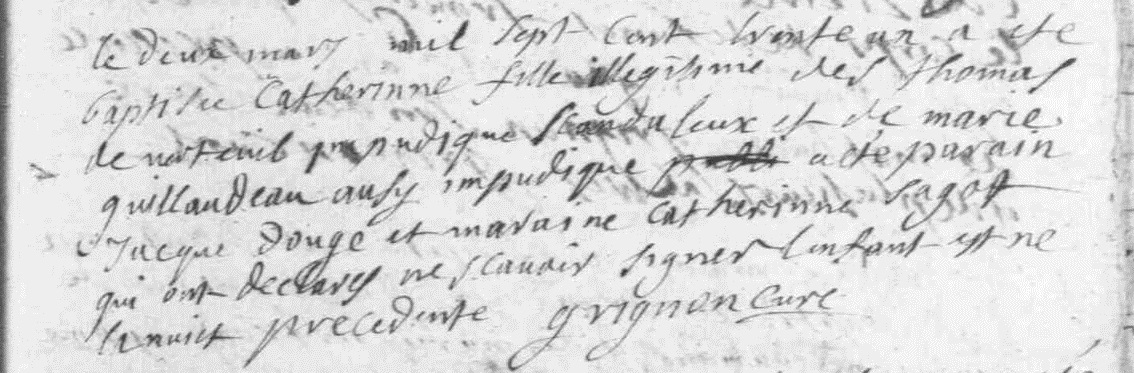 le deux mars mil sept cent trente un a ete
baptisee Catherinne fille illegitime des thomas
de nanteuil impudique scandaleux et de marie
quillaudeau ausy impudique a ete parain
Jacque Douge et maraine Catherinne Sagot
qui ont declares ne scavoir signer lenfant est ne
la nuict precedente grignon cure